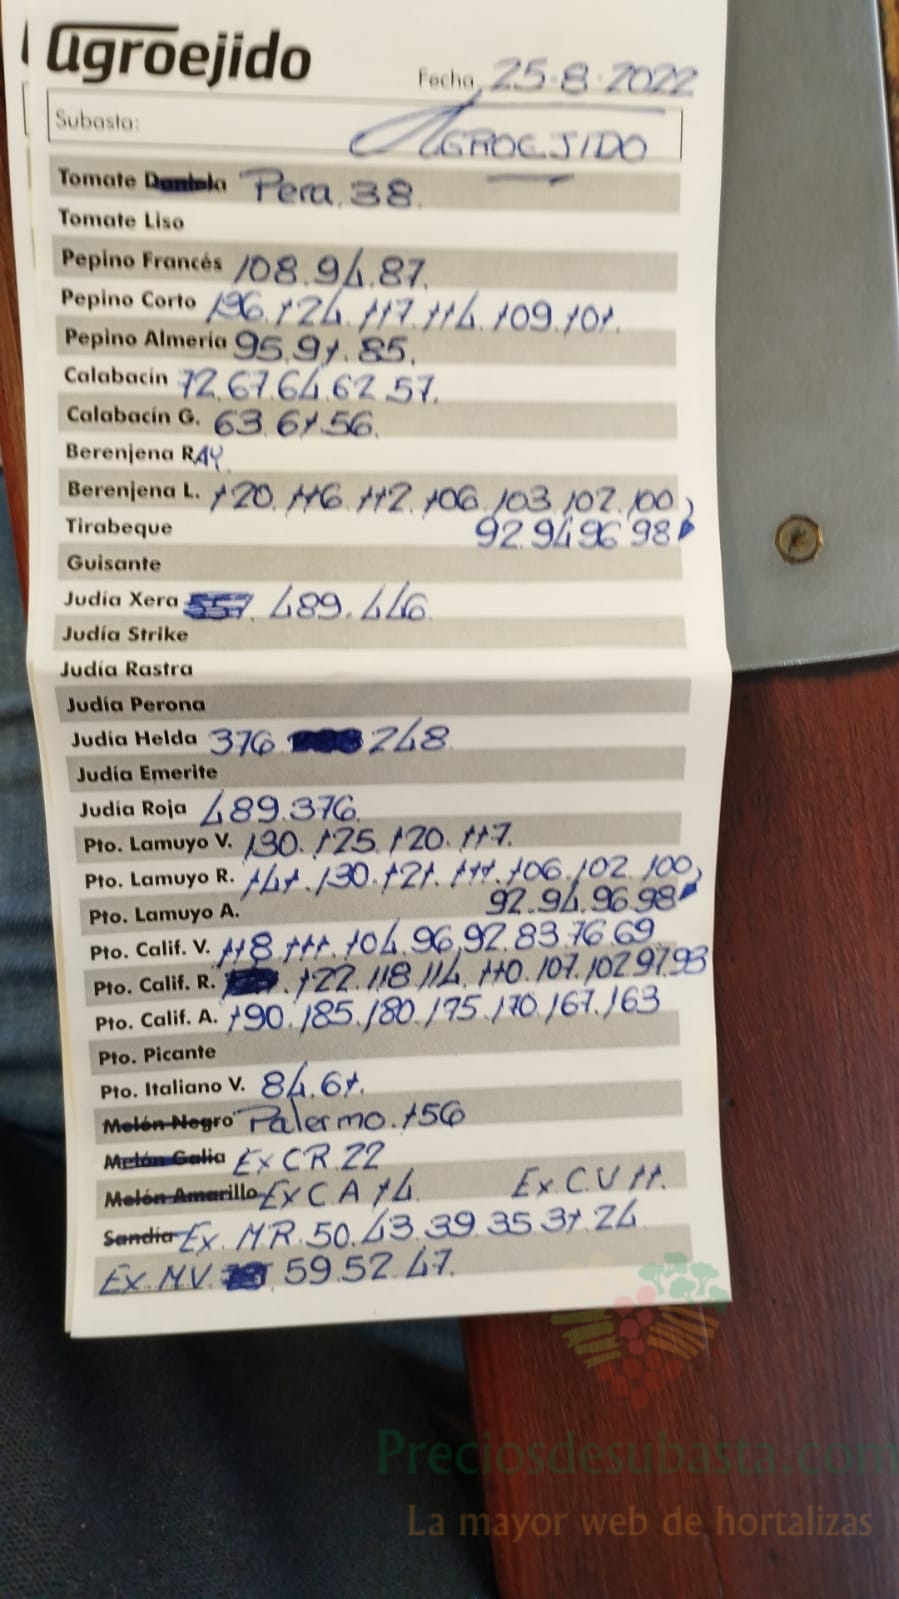 agroejido
Fecha 25-8-2022
Subasta: AGROEJIDO
Tomate Daniela Pera. 38.
Tomate Liso
Pepino Francés 108.94.87.
Pepino Corto 196.124.117.114.109.101.
Pepino Almería 95.91.85.
Calabacín 72.67.64.62.57.
Calabacín G. 63.61.56.
Berenjena RAY
Berenjena L. 120.116.112.106.103.102.100
Tirabeque 92.94.96.98
Guisante
Judía Xera 557. 489.446.
Judía Strike
Judía Rastra
Judía Perona
Judía Helda 376 248
Judía Emerite
Judía Roja 489.376.
Pto. Lamuyo V. 130.125.120.117.
Pto. Lamuyo R. 141.130.121.111.106.102.100
Pto. Lamuyo A. 92.94.96.98
Pto. Calif. V. 118.111.104.96.92.83.76.69
Pto. Calif. R. .122.118.114.110.107.102.97.93
Pto. Calif. A. 190.185.180.175.170.167.163
Pto. Picante
Pto. Italiano V. 84.61.
Melón Negro Palermo.156
Melón Galia Ex CR.22
Melón Amarillo Ex C.A 14. Ex C.V 11.
Sandía Ex. M.R. 50.43.39.35.31.24
Ex M.V. 59.52.47.
Preciosdesubasta.com
La mayor web de hortalizas